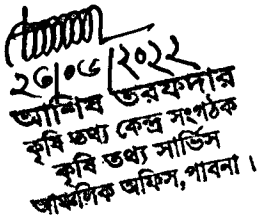 ২৩/০৬/২০২২
আশিষ তরফদার
কৃষি তথ্য কেন্দ্র সংগঠক
কৃষি তথ্য সার্ভিস
আঞ্চলিক অফিস, পাবনা।